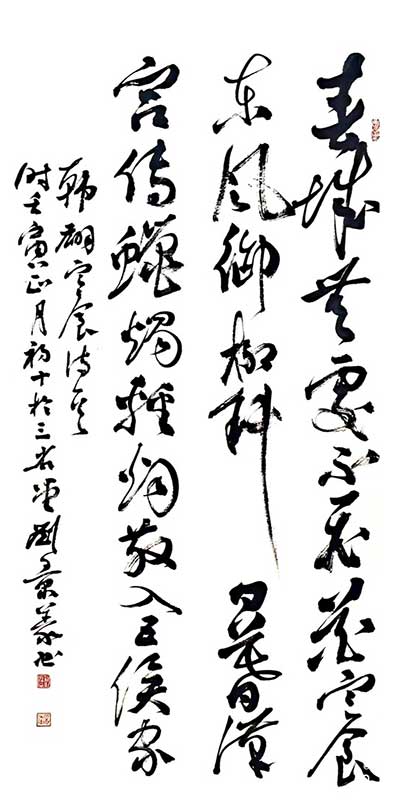 春城無處不飛花寒食
東風御柳斜日暮漢
宮傳蠟燭輕烟散入五侯家
韓翃寒食詩
時壬寅正月初十於三省堂劉景義書